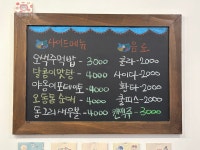 사이드메뉴
오색주먹밥 - 3000
달콤이맛탕 - 4000
야옹이포테토 - 4000
오동통 소떡 - 4000
동그리새우볼 - 4000
음료
콜라 - 2000
사이다 - 2000
환타 - 2000
쿨피스 - 2000
캔맥주 - 3000